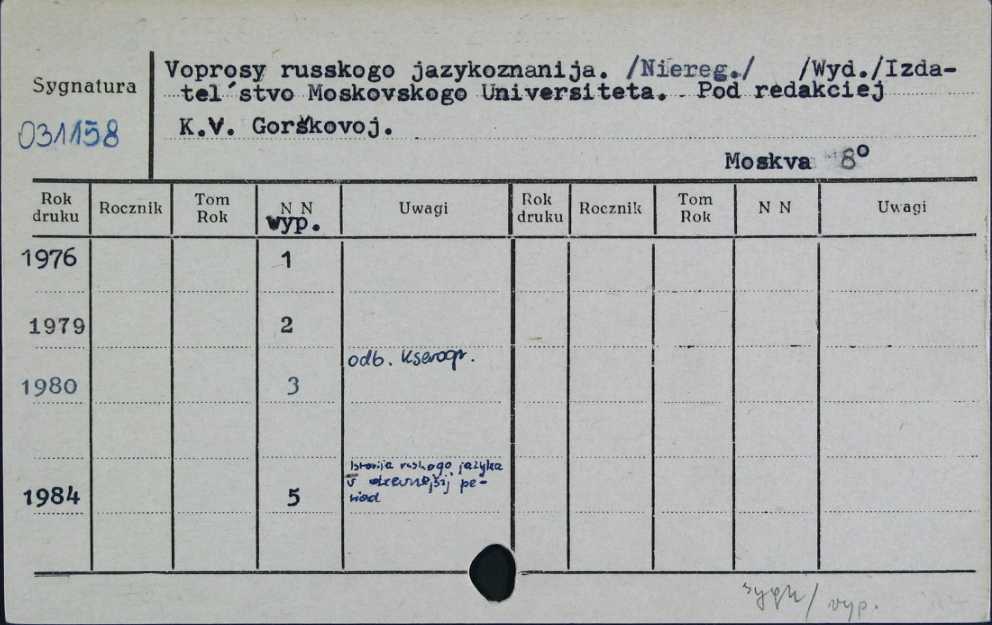 Sygnatura
031158
Voprosy russkogo jazykoznanija. /Niereg./ /Wyd./Izda-
tel´stvo Moskovskogo Universiteta. Pod redakciej
K.V. Gorškovoj.
Moskva 8°
Rok druku Rocznik Tom Rok N N wyp. Uwagi Rok druku Rocznik Tom Rok N N Uwagi
1976 1
1979 2
odb. kserogr.
1980 3
Istorija ruskogo jazyka
v drevnejšij pe-
riod
1984 5
sygn/ wyp.